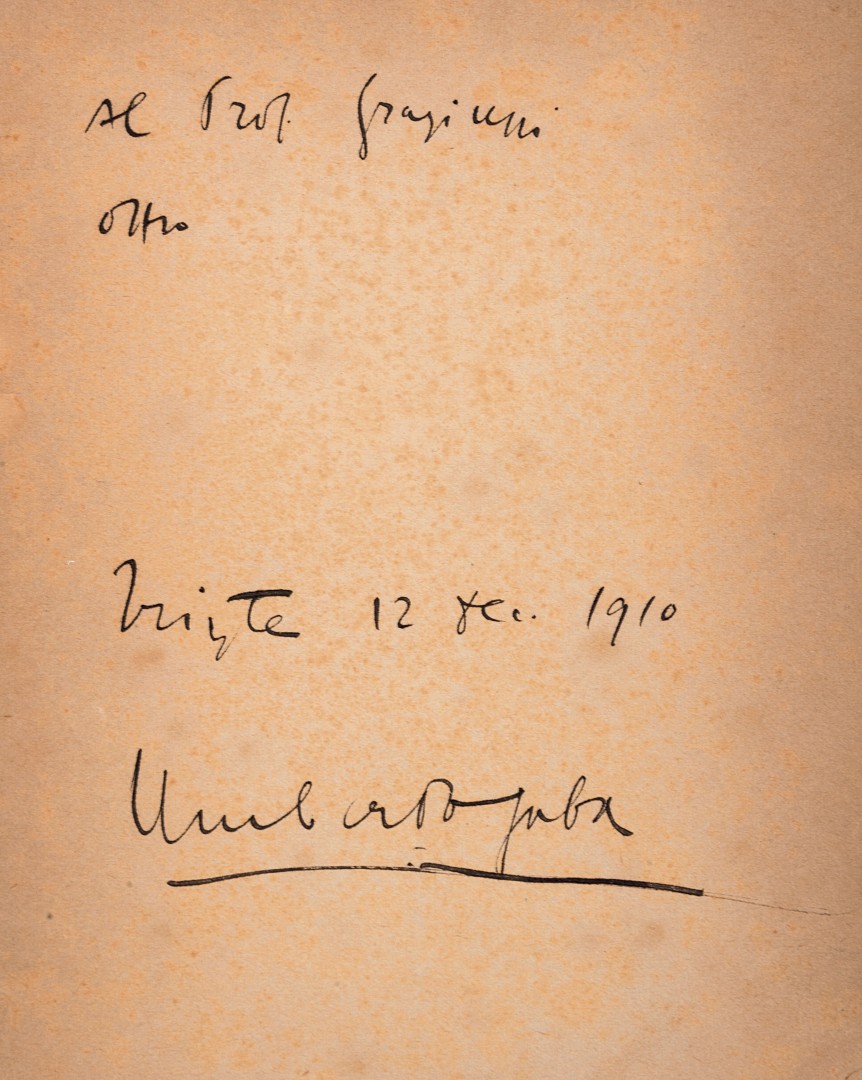 Al Prof. Graziussi
offro
Trieste 12 dec. 1910
Umberto Saba